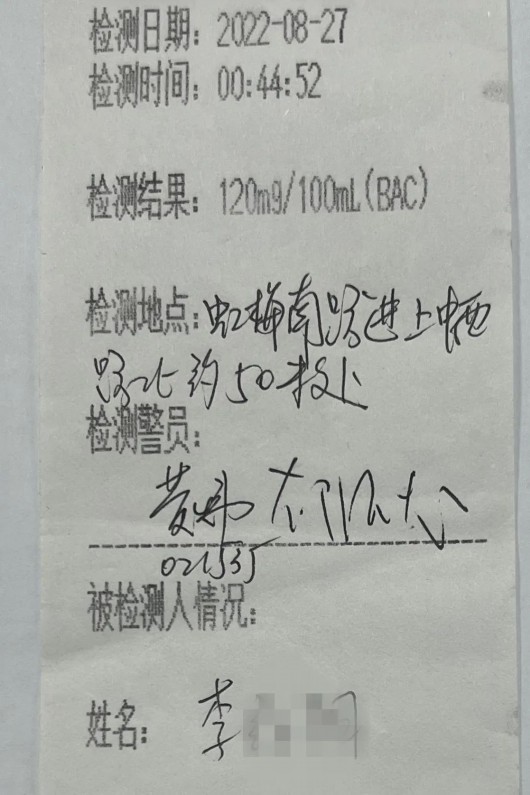 检测日期：2022-08-27
检测时间：00:44:52
检测结果：120mg/100mL(BAC)
检测地点：虹梅南路进上中西
路北约50米处
检测警员：
021535
被检测人情况：
姓名：李